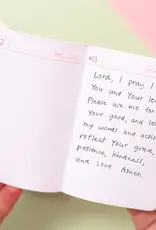 2
#13
Lord, I pray I
You and Your
Please use me for
Your good, and let
my words and actions
reflect your grace,
patience, kindness,
and love Amen